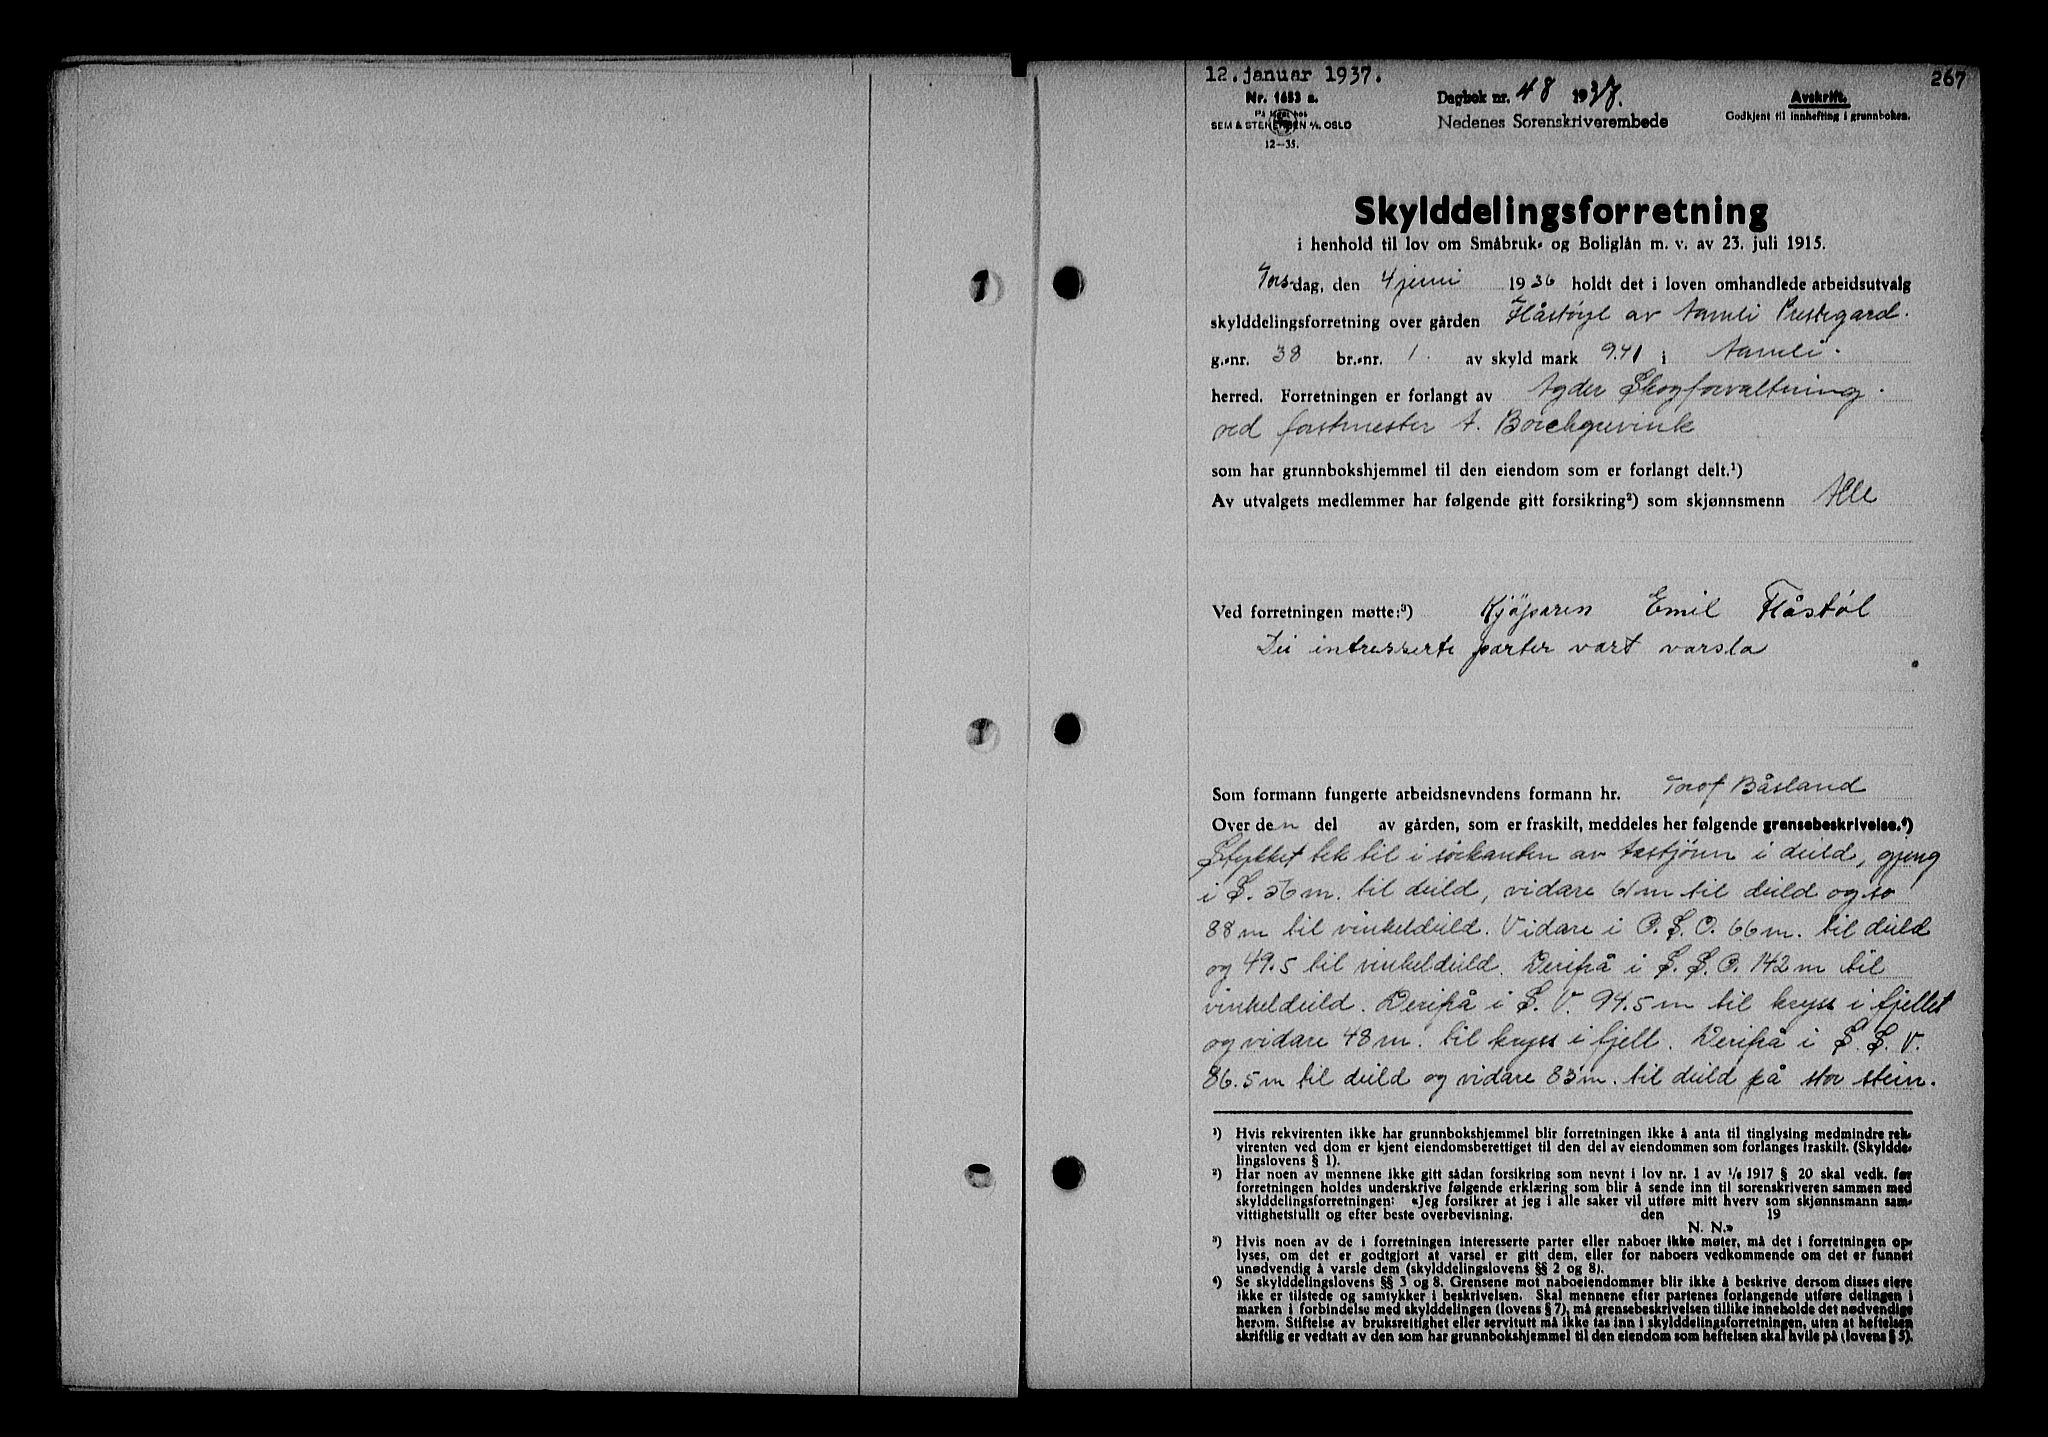 12. januar 1937.
267
Nr. 1653 a.
På lager hos
SEM & STENERSEN A/S, OSLO
12-35.
Dagbok nr. 48 1937.
Nedenes Sorenskriverembede
Avskrift.
Godkjent til innhefting i grunnboken.
Skylddelingsforretning
i henhold til lov om Småbruk- og Boliglån m. v. av 23. juli 1915.
Torsdag, den 4 juni 1936 holdt det i loven omhandlede arbeidsutvalg
skylddelingsforretning over gården Flåstøyl av Aamli Prestegard.
g.-nr. 38 br.-nr. 1. av skyld mark 9.41 i Aamli.
herred. Forretningen er forlangt av Agder Skogforvaltning.
ved forstmester A. Borchgrevink
som har grunnbokshjemmel til den eiendom som er forlangt delt.¹)
Av utvalgets medlemmer har følgende gitt forsikring²) som skjønnsmenn Alle
Ved forretningen møtte:³) Kjøparen Emil Flåstøl
Dei intresserte parter vart varsla
Som formann fungerte arbeidsnevndens formann hr. Torof Båsland
Over den del av gården, som er fraskilt, meddeles her følgende grensebeskrivelse.⁴)
Stykket tek til i sørkanten av tastjønn i deild, gjeng
i S. 26 m. til deild, vidare 61 m til deild og so
88 m til vinkeldeild. Vidare i O. S. O. 66 m. til deild
og 49.5 til vinkeldeild. Derifrå i S. S. O. 142 m til
vinkeldeild. Derifrå i S. V. 94.5 m til kryss i fjellet
og vidare 48 m. til kryss i fjell. Derifrå i S. S. V.
86.5 m til deild og vidare 83 m. til deild på stor stein.
¹) Hvis rekvirenten ikke har grunnbokshjemmel blir forretningen ikke å anta til tinglysing medmindre rek-
virenten ved dom er kjent eiendomsberettiget til den del av eiendommen som forlanges fraskilt. (Skyldde-
lingslovens § 1).
²) Har noen av mennene ikke gitt sådan forsikring som nevnt i lov nr. 1 av 1/6 1917 § 20 skal vedk. før
forretningen holdes underskrive følgende erklæring som blir å sende inn til sorenskriveren sammen med
skylddelingsforretningen: «Jeg forsikrer at jeg i alle saker vil utføre mitt hverv som skjønnsmann sam-
vittighetsfullt og efter beste overbevisning. den 19
N. N.»
³) Hvis noen av de i forretningen interesserte parter eller naboer ikke møter, må det i forretningen op-
lyses, om det er godtgjort at varsel er gitt dem, eller for naboers vedkommende om det er funnet
unødvendig å varsle dem (skylddelingslovens §§ 2 og 8).
⁴) Se skylddelingslovens §§ 3 og 8. Grensene mot naboeiendommer blir ikke å beskrive dersom disses eiere
ikke er tilstede og samtykker i beskrivelsen. Skal mennene efter partenes forlangende utføre delingen i
marken i forbindelse med skylddelingen (lovens § 7), må grensebeskrivelsen tillike inneholde det nødvendige
herom. Stiftelse av bruksrettighet eller servitutt må ikke tas inn i skylddelingsforretningen, uten at heftelsen
skriftlig er vedtatt av den som har grunnbokshjemmel til den eiendom som heftelsen skal hvile på (lovens § 5).